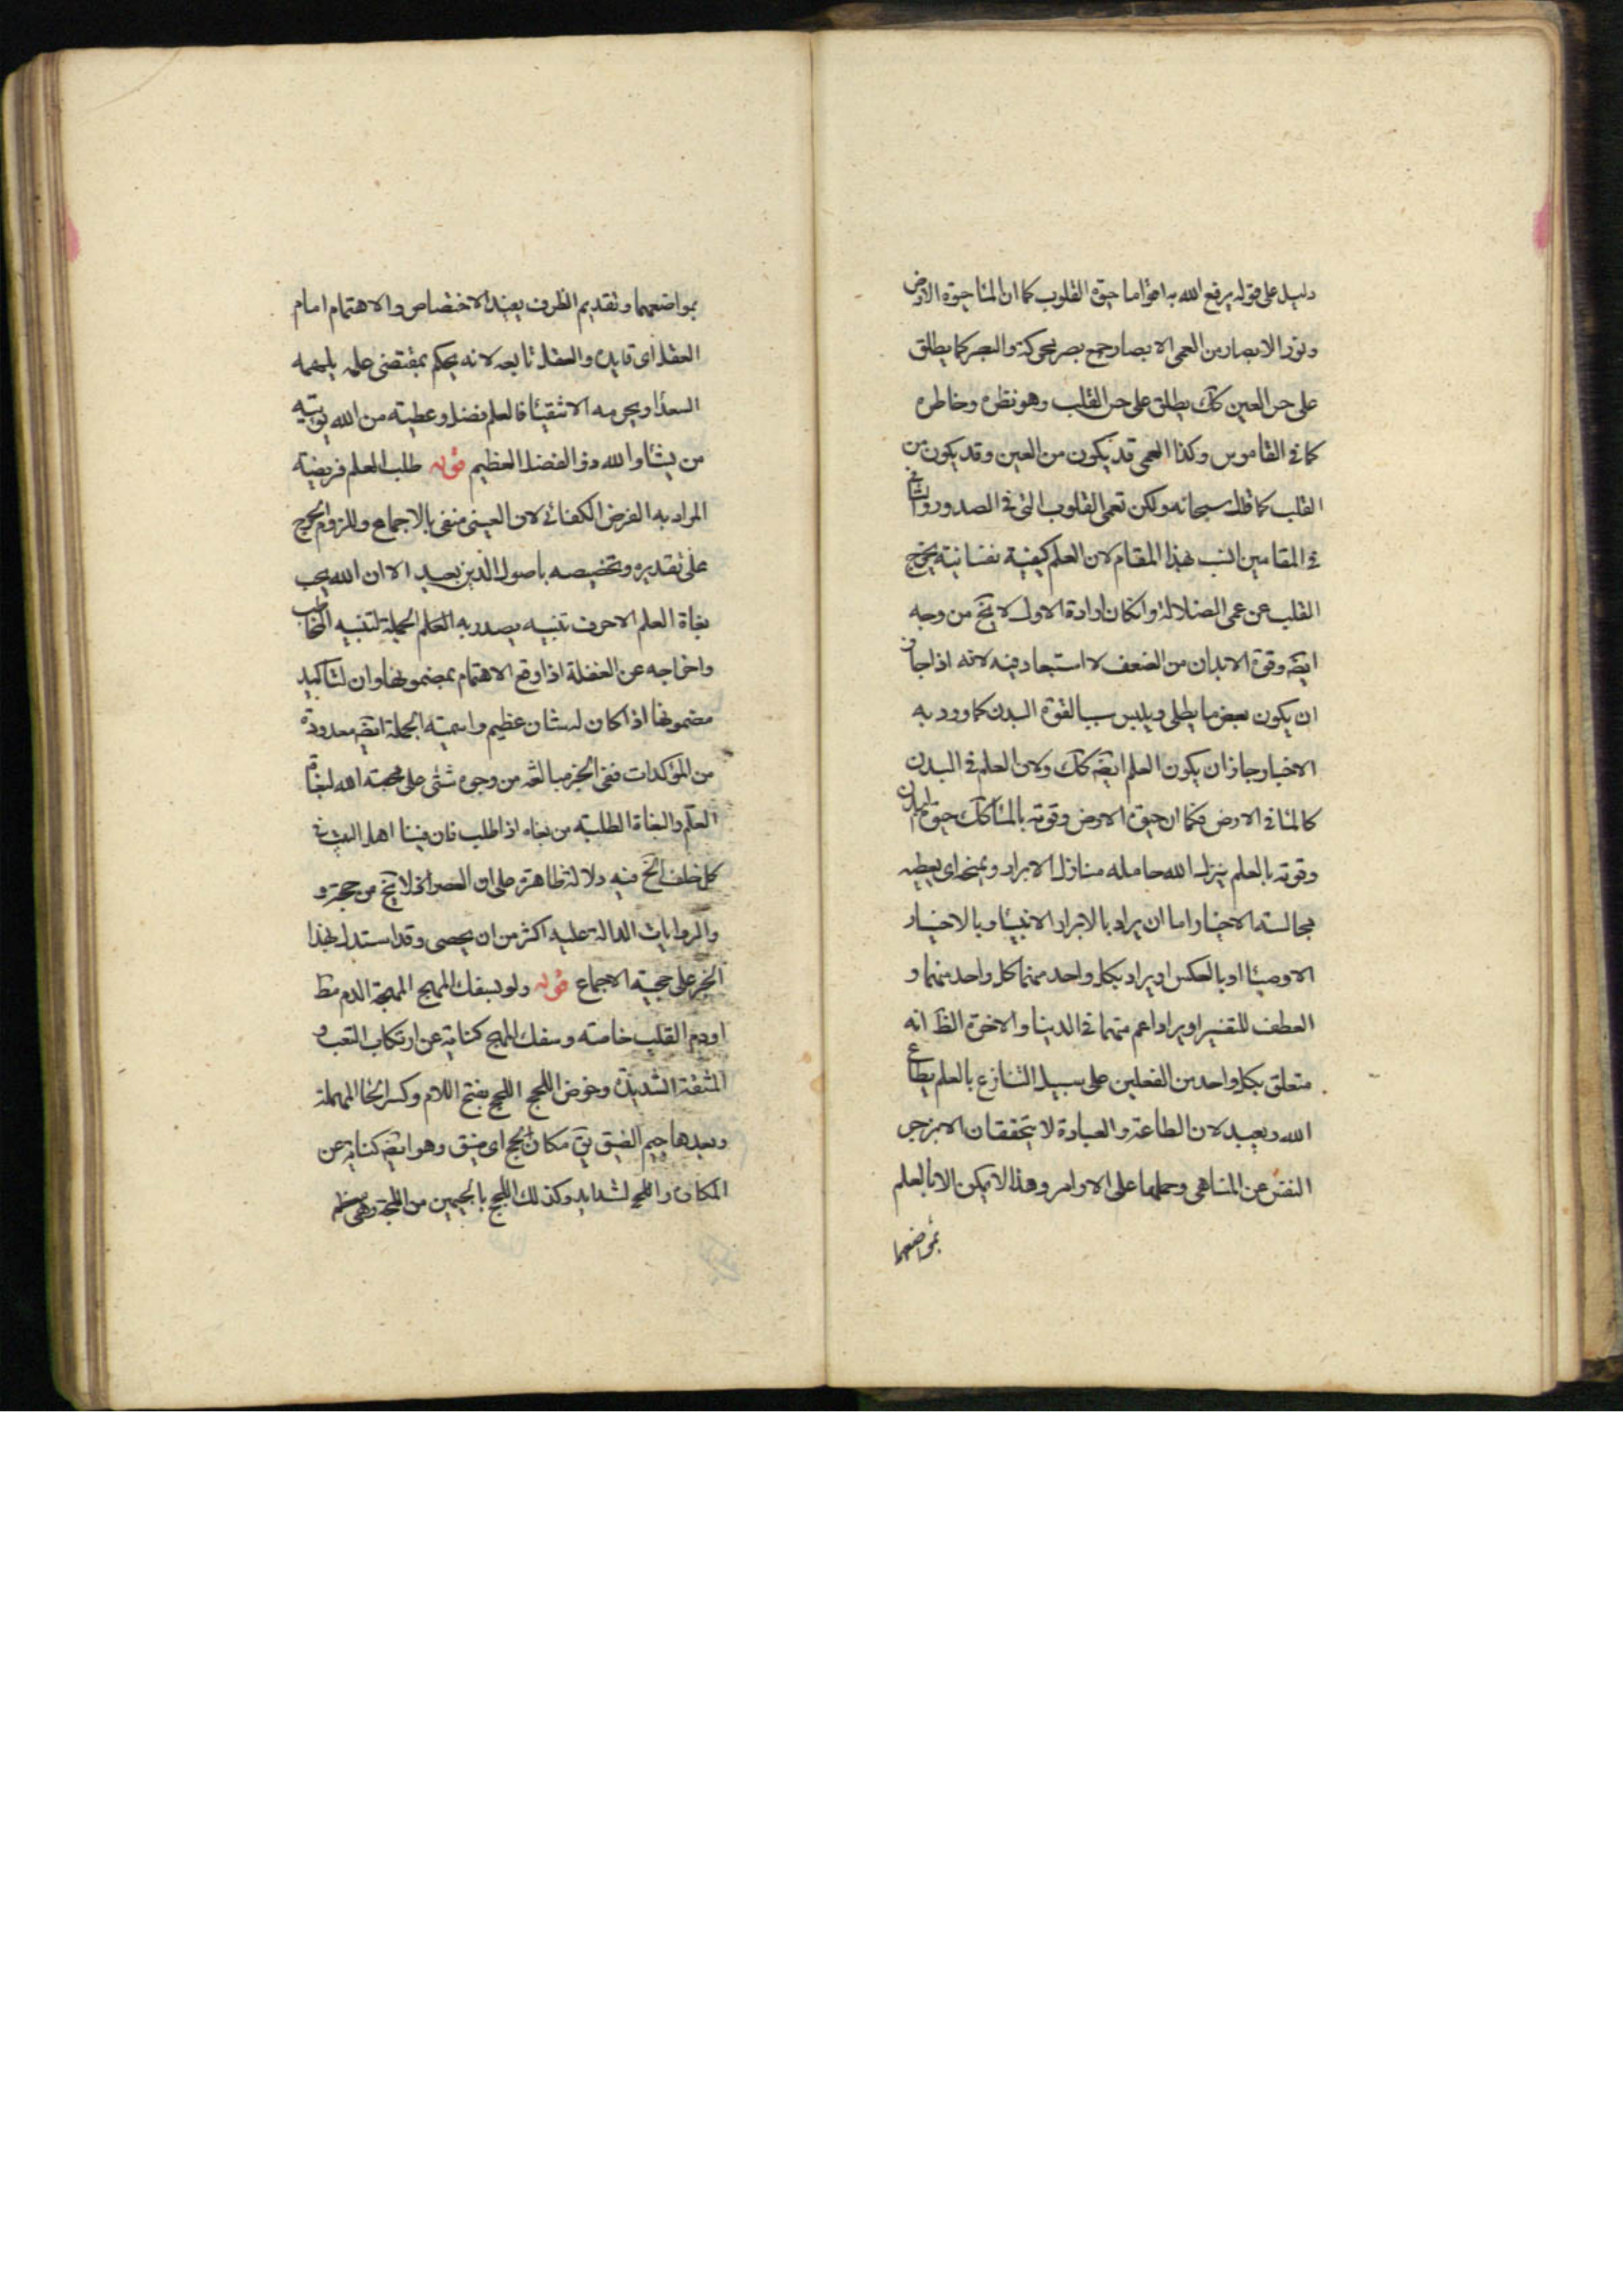 دليل على قوله يرفع الله به اقواما حيوة القلوب كما ان الماء حيوة الارض
ونور الابصار من العمى الابصار جمع بصر محركة والبصر كما يطلق
على حس العين كك يطلق على حس القلب وهو نظره وخاطره
كما فى القاموس وكذا العمى قد يكون من العين وقد يكون من
القلب كما قال سبحانه ولكن تعمى القلوب التى فى الصدور والثانى
فى المقامين انسب بهذا المقام لان العلم كيفية نفسانية يخرج
القلب عن عمى الضلالة وان كان ارادة الاول لا يخ من وجه
ايضه وقوة الابدان من الضعف لا استبعاد فيه لانه اذا جاز
ان يكون بعض ما يطلى ويلبس سببا لقوة البدن كما ورد به
الاخبار جاز ان يكون العلم ايضه كك ولان العلم فى البدن
كالماء فى الارض فكما ان حيوة الارض وقوته بالماء كك حيوة البدن
وقوته بالعلم ينزل الله حامله منازل الابرار ويمنحه اى يعطيه
مجالسة الاخيار اما ان يراد بالابرار الانبياء وبالاخيار
الاوصياء او بالعكس او يراد بكل واحد منهما كل واحد منهما و
العطف للتفسير او يراد اعم منهما فى الدنيا والاخرة الظ انه
متعلق بكل واحد من الفعلين على سبيل التنازع بالعلم يطاع
الله ويعبد لان الطاعة والعبادة لا يتحققان الا بزجر
النفس عن المناهى وحملها على الاوامر وهذا لا يمكن الا بالعلم
بمواضعهما
بمواضعهما وتقديم الظرف يفيد الاختصاص والاهتمام امام
العقل اى قايده والعقل تابعه لانه يحكم بمقتضى علمه يلهمه
السعداء ويحرمه الاشقياء فالعلم فضل وعطية من الله يؤتيه
من يشاء والله ذو الفضل العظيم قوله طلب العلم فريضة
المراد به الفرض الكفائى لان العينى منفى بالاجماع وللزوم الحرج
على تقديره وتخصيصه باصول الدين بعيد الا ان الله يحب
بغاة العلم الا حرف تنبيه يصدر به الكلام الجملة لتنبيه المخاطب
واخراجه عن الغفلة اذا وقع الاهتمام بمضمونها وان لتاكيد
مضمونها اذا كان له شان عظيم واسمية الجملة ايضه معدودة
من المؤكدات ففى الخبر مبالغة من وجوه شتى على محبة الله لبغاة
العلم والبغاة الطلبة من بغاه اذا طلب فان فينا اهل البيت فى
كل خلف الخ فيه دلالة ظاهرة على ان العصر لا يخ من حجة و
والروايات الدالة عليه اكثر من ان يحصى وقد استدل بهذا
الخبر على حجية الاجماع قوله ولو بسفك المهج المهجة الدم مط
او دم القلب خاصته وسفك المهج كناية عن ارتكاب التعب و
المشقة الشديدة وخوض اللجج اللحج بفتح اللام وكسر الحاء المهملة
وبعدها جيم الضيق يق مكان لحج اى ضيق وهو ايضه كناية عن
المكان واللحج لشدايد وكذلك اللجج بالجيمين من اللجة وهى معظم